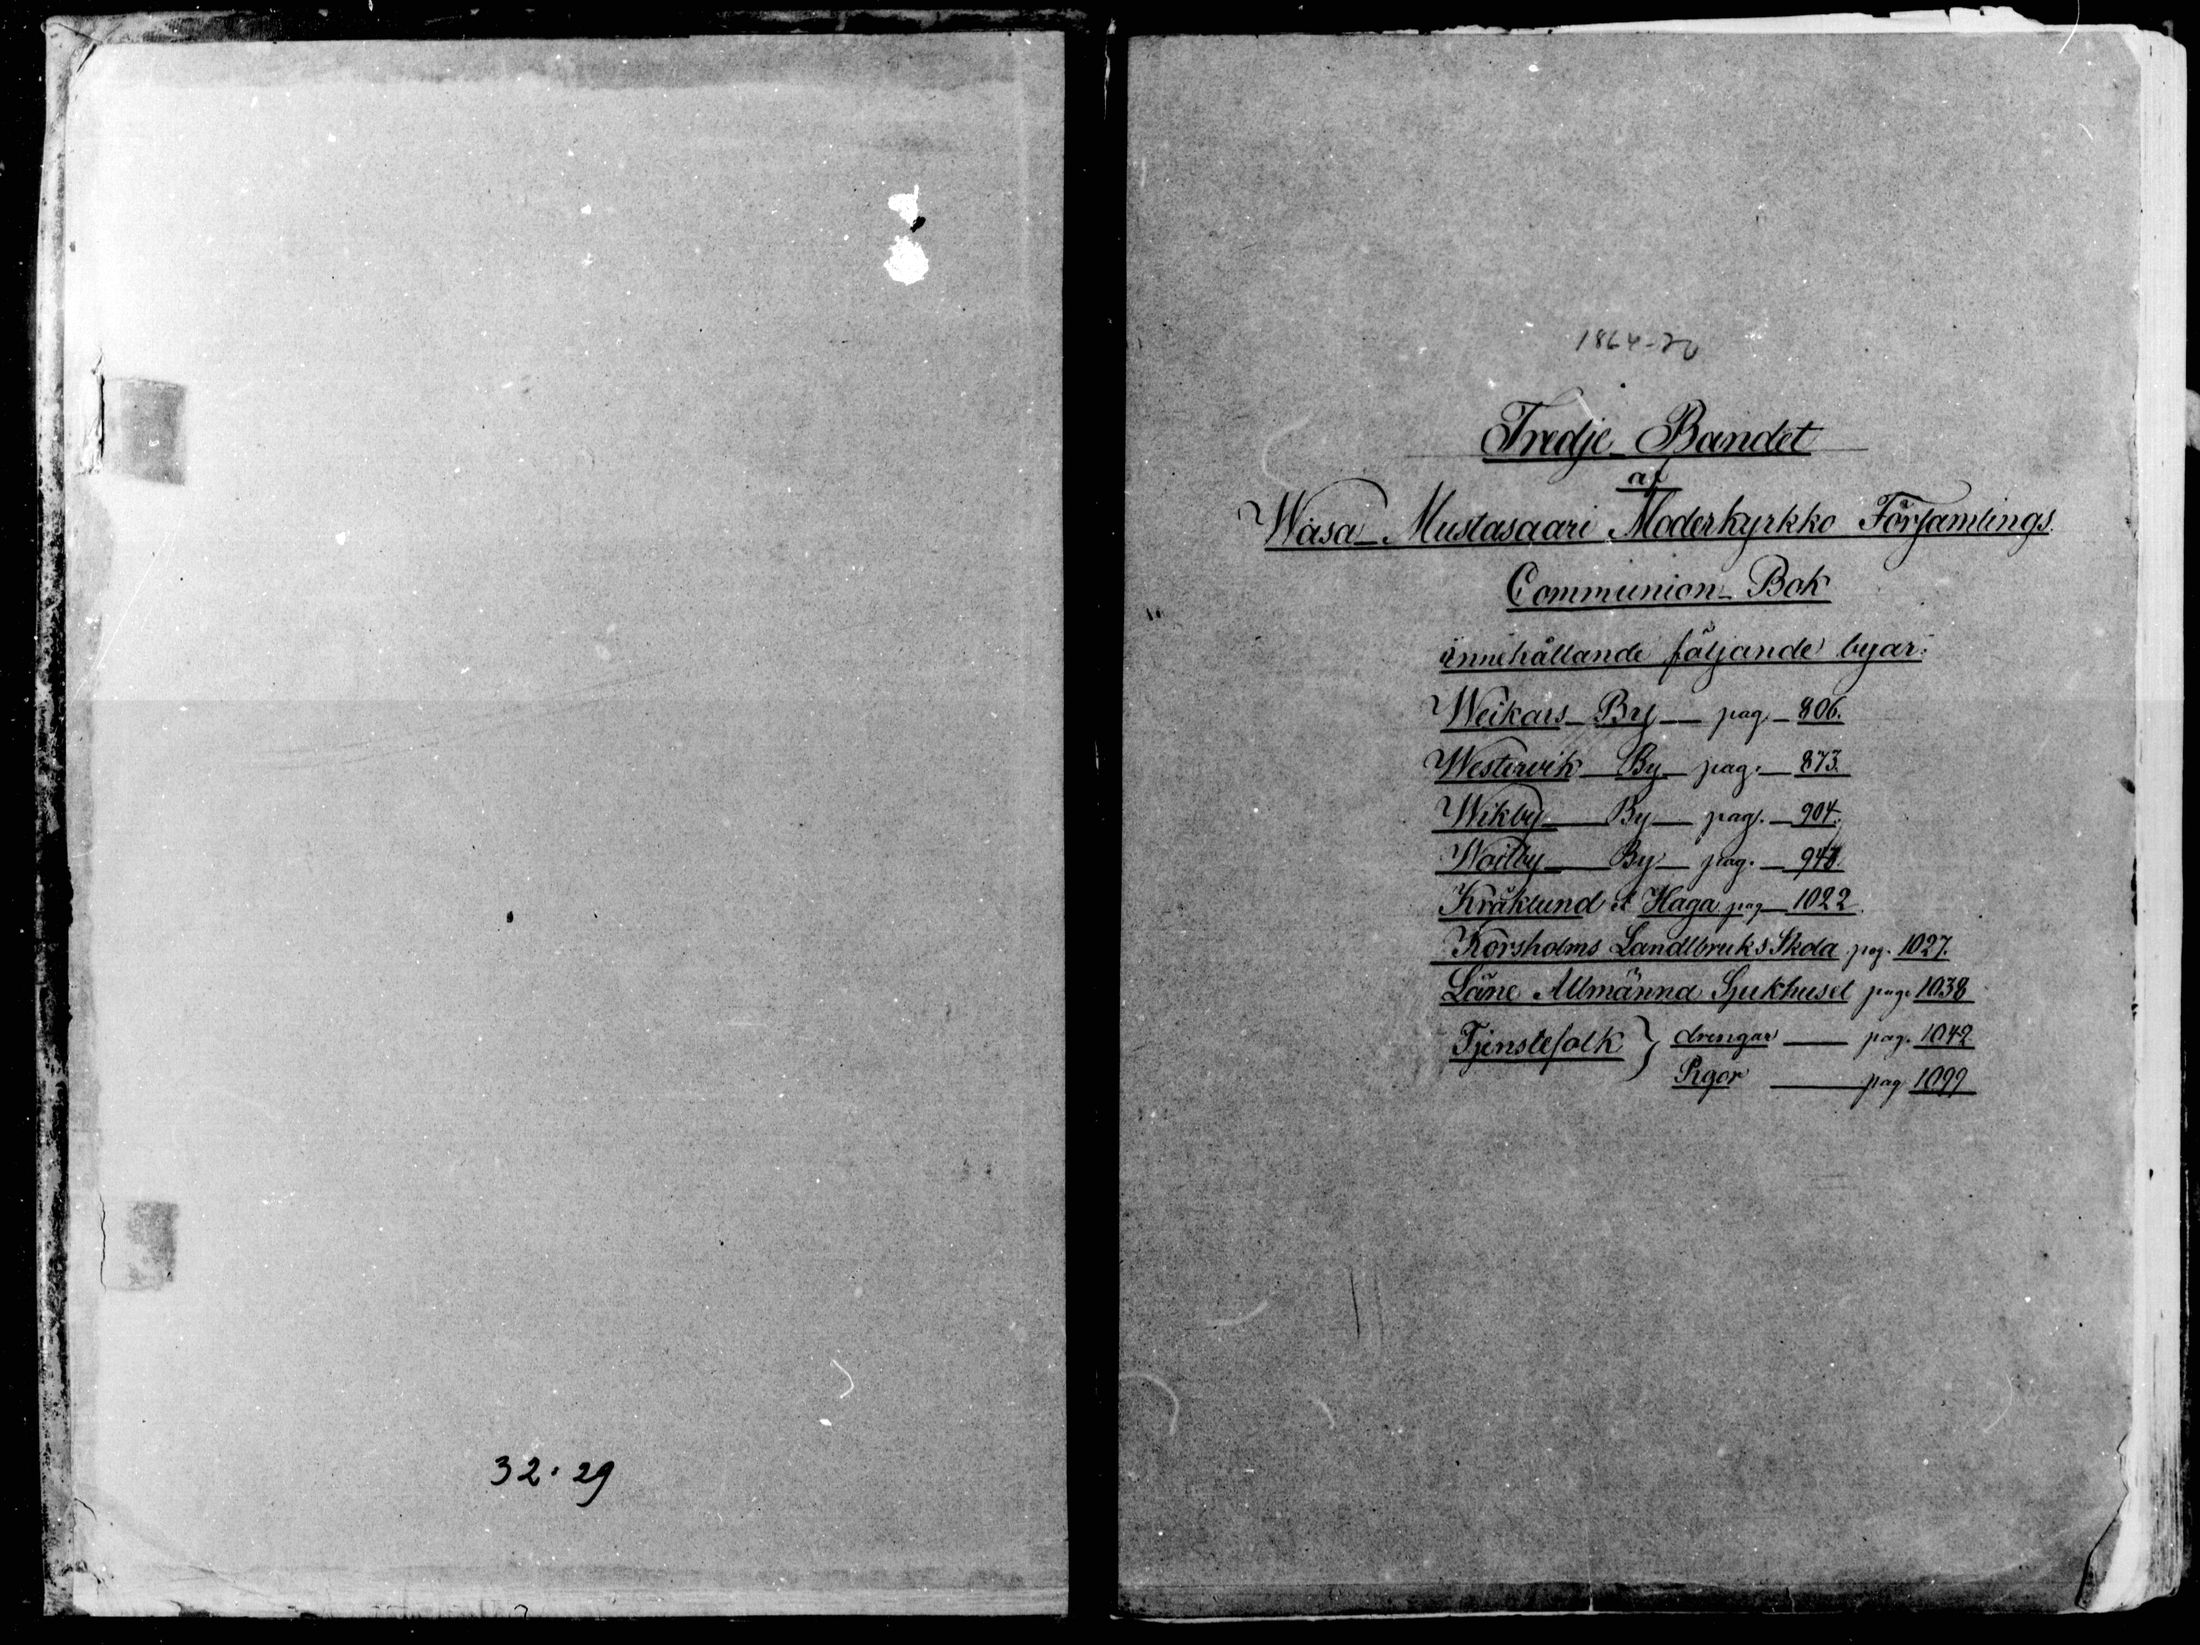 32.29
1864-70
Tredje Bandet
af
Wasa Mustasaari Moderkyrkko Församlings
Communion-Bok
innehållande följande byar:
Weikars By pag 806.
Westervik By pag. 873.
Wikby By pag. 904.
Woitby By pag.
Kråklund et Haga pag 1022.
Korsholms Landtbruks Skola pag. 1027.
Läne Allmänna Sjukhuset pag. 1038
Tjenstefolk } drengar pag. 1042
Pigor pag 1099